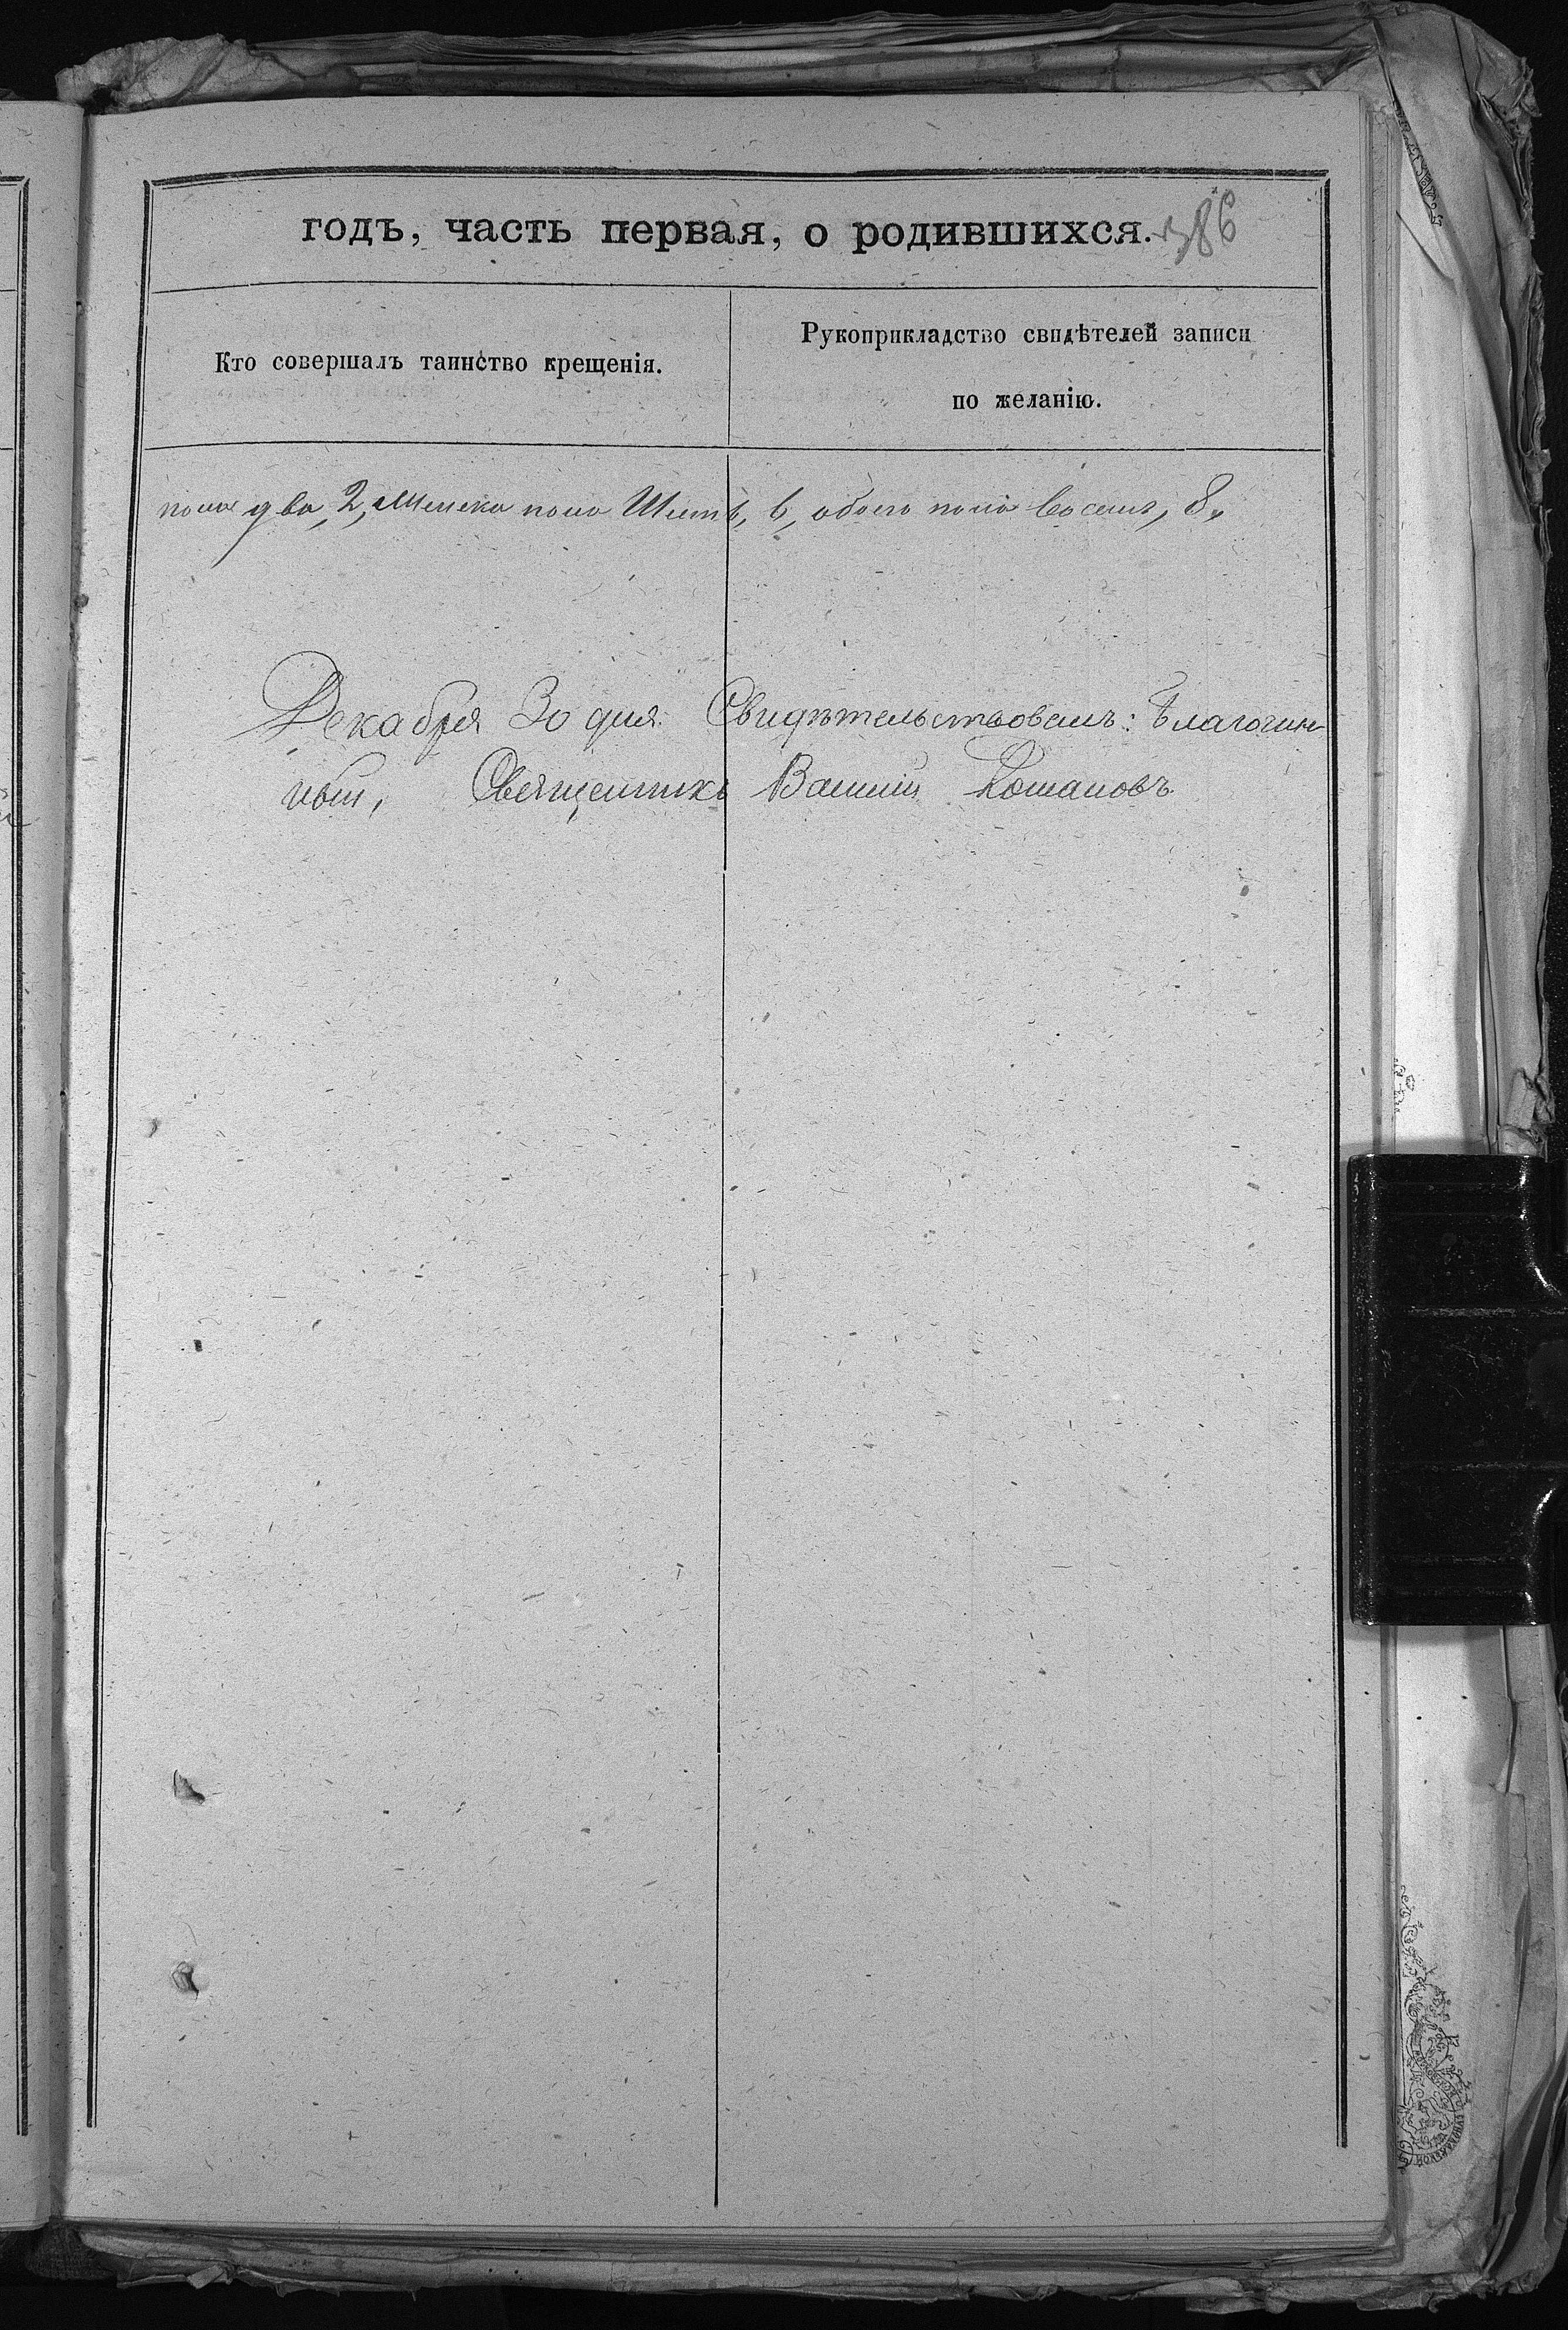 годъ, часть первая, о родившихся. 386
Кто совершалъ таинство крещенія.
Рукоприкладство свидѣтелей записи
по желанію.
пола два, 2, Женска пола Шесть, 6, обоего пола восемь, 8,
Декабря 30 дня. Свидѣтельствовалъ: Благочин
ный, Священникъ